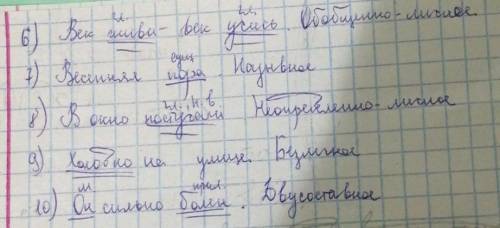 гл. гл.
6) Век живи - век учись. Обобщённо-личное
сущ
7) Весенняя пора. Назывное.
гл., п.в.
8) В окно постучали Неопределенно-личное
9) Холодно на улице. Безличное
м. прил.
10) Он сильно болен. Двусоставное